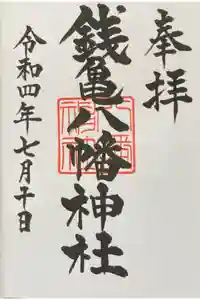 奉拝
銭亀八幡神社
令和四年七月日